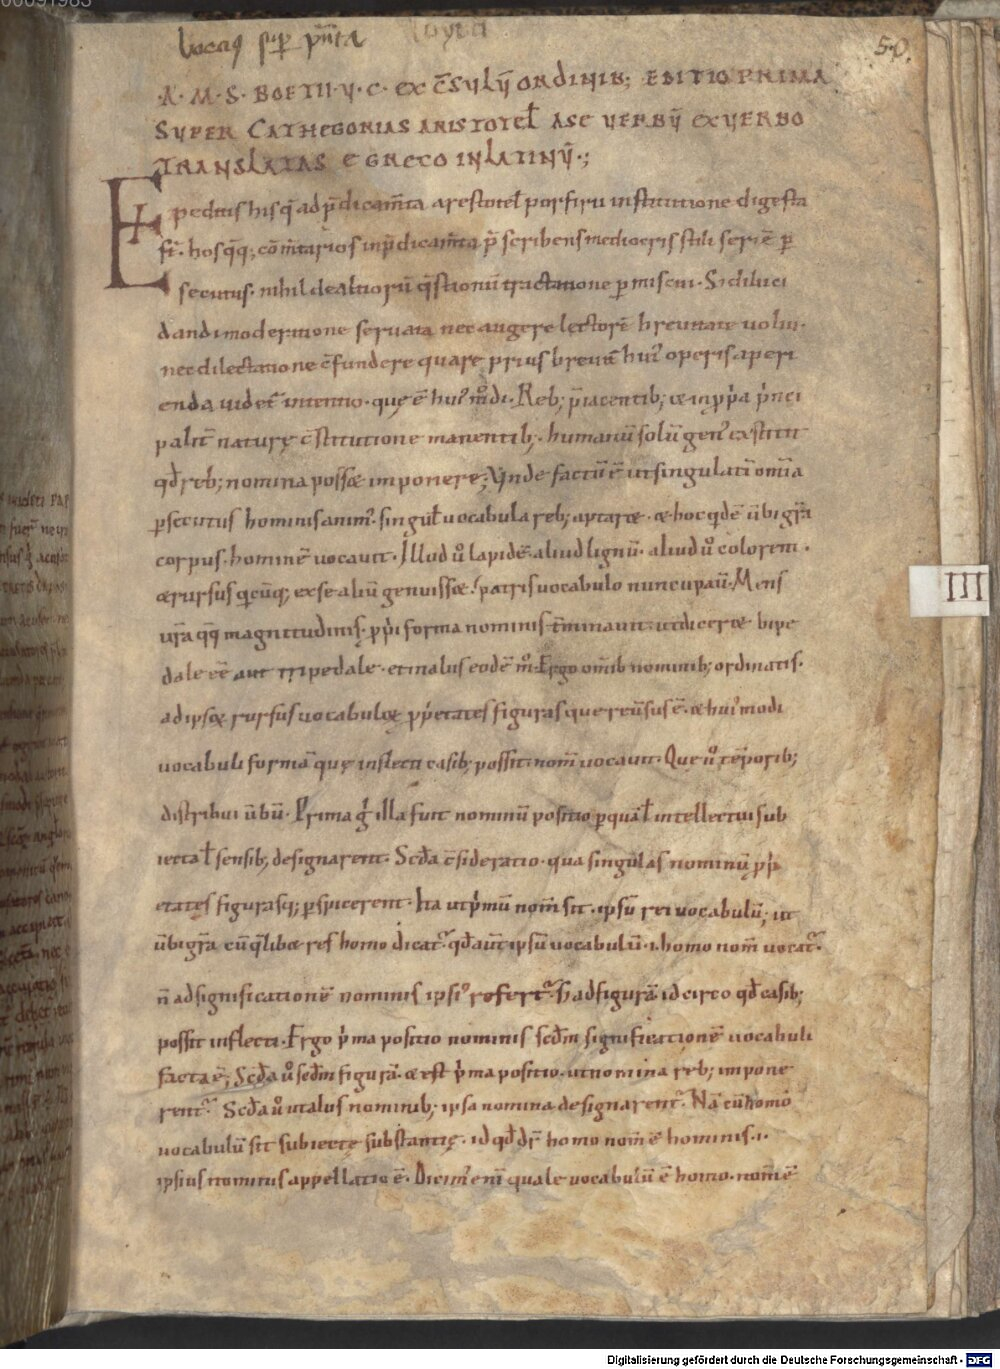 00091983
boeciꝯ sup pͥnta
50.
A. M. S. BOETII. V. C. EX CͦSVLV̄ ORDINIB; EDITIO PRIMA
SVPER CATHEGORIAS ARISTOTEŁ A SE VERBV̄ EX VERBO
TRANSLATAS E GRECO IN LATINV̄.;
Expeditis his q̄ ad p̄dicam̄ta arestoteł porfirii institutione digesta
st̄. hos q̄q; cōm̄tarios in p̄dicam̄ta p̄scribens mediocris stili seriē ꝑ
secutus. nihil de altiorū q̄stionū tractatione ꝑmiscui. S; diluci
dandi moderatione seruata nec angere lectorē breuitate uolui.
nec dilectatione c̄fundere quare prius breuit̄ huiꝰ operis aperi
enda uidet̄ intentio. quę ē huiꝰ mͦdi. Reb; p̄iacentib; & in ꝓpͥa pͥnci
palit̄ naturę c̄stitutione manentib;. humanū solū genꝰ exstitit
qd̄ reb; nomina poss& imponere; Vnde factū ē ut singulatī om̄ia
ꝑsecutus hominis animꝰ. singuł uocabula reb; aptar&. & hoc qdē ūbi gr̄a
corpus. hominē uocauit. Illud ů lapidē. aliud lignū. aliud ů colorem.
& rursus qͥcūq; ex se aliū genuiss&. patris uocabulo nuncupauit. Mens
urā qͦq; magnitudinis. ꝓpͥi forma nominis t̄minauit. ut dicer& bipe
dale eē aut tripedale. et in alus eodē mͦ. Ergo om̄ib nominib; ordinatis.
ad ipso& rursus uocabulo& ꝓpͥetates figurasque reūsus ē. & huiꝰmodi
uocabuli formā quę inflecti casib; possit. nom̄ uocauit. Quę ů tēporib;
distribui ūbū. Prima g̊ illa fuit nominū positio ꝑ quā ł intellectui sub
iecta ł sensib; designarent. Scd̄a c̄sideratio. qua singulas nominū ꝓpͥ
etates figurasq; ꝑspicerent. Ita ut pͥmū nom̄ sit. ipsū rei uocabulū; ut
ūbi gr̄a cū qͥlib& res homo dicat᷑. qd̄ aut̄ ipsū uocabulū. i. homo nom̄ uocat᷑.
n̄ ad significationē nominis ipsiꝰ refert᷑. S; ad figurā idcirco qd̄ casib;
possit inflecti. Ergo pͥma positio nominis scd̄m significationē uocabuli
facta ē; Scd̄a ů scd̄m figurā. & est pͥma positio. ut nomina reb; impone
rent᷑. Scd̄a ů ut aliis nominib; ipsa nomina designarent᷑. Nā cū homo
uocabulū sit subiectę substantię. id qd̄ dr̄ homo nom̄ ē hominis. i.
ipsius nominis appellatio ē. Dicimꝰ enī quale uocabulū ē homo. nom̄ ē
III
Digitalisierung gefördert durch die Deutsche Forschungsgemeinschaft - DFG